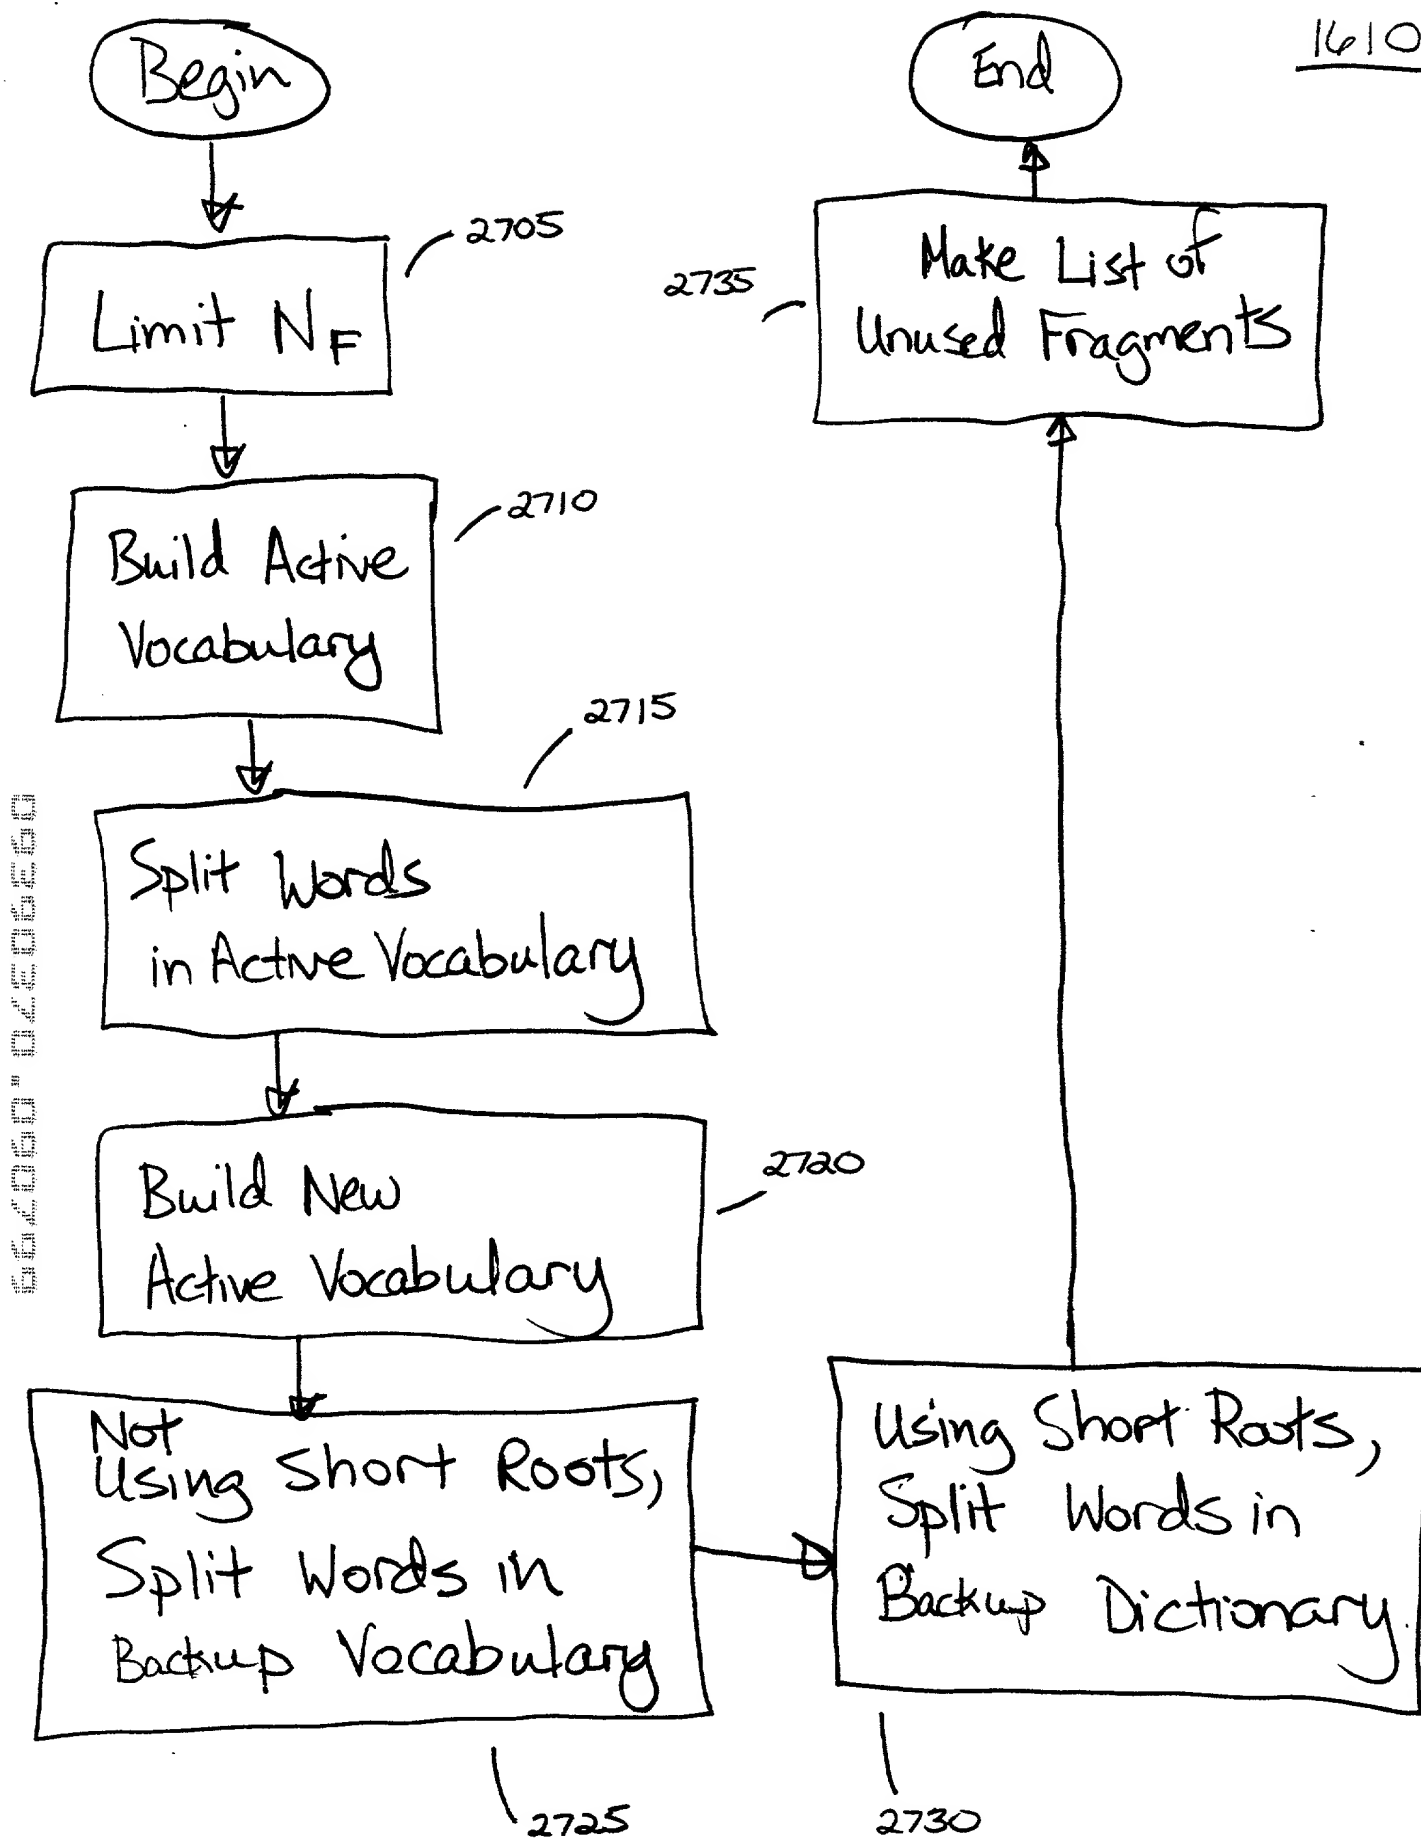 Begin
2705
Limit NF
2710
Build Active
Vocabulary
2715
Split Words
in Active Vocabulary
2720
Build New
Active Vocabulary
Not
Using Short Roots,
Split Words in
Backup Vocabulary
2725
Using Short Roots,
Split Words in
Backup Dictionary
2730
2735
Make List of
Unused Fragments
End
1610